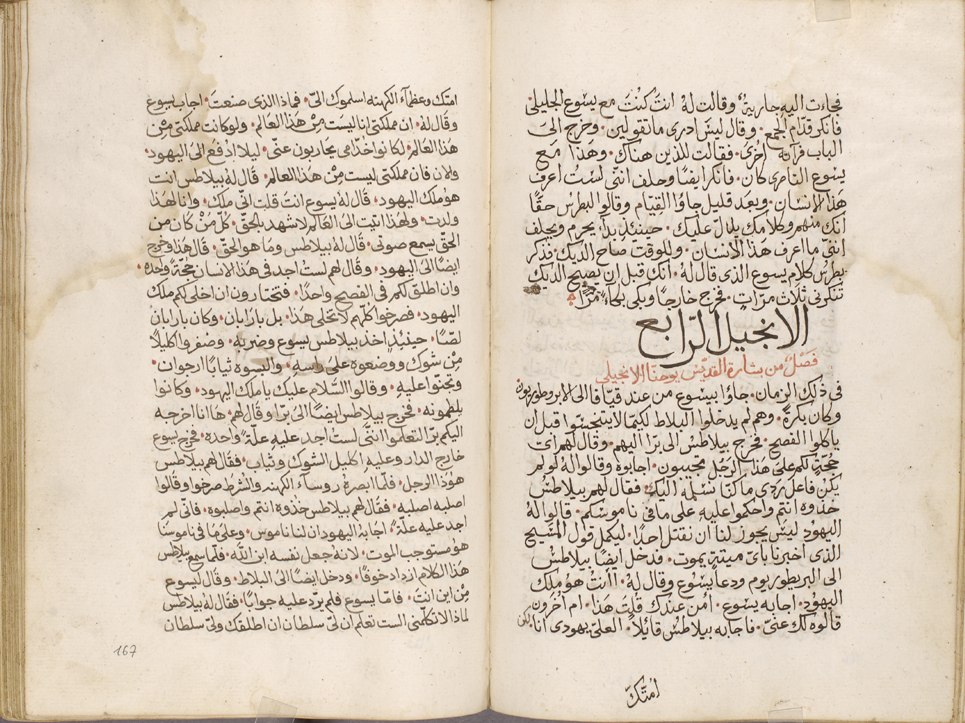 فجاءت اليه جارية وقالت له انت كنت مع يسوع الجليلى
فانكر قدام الجمع وقال ليس ادرى ما تقولين وخرج الى
الباب فراته اخرى فقالت للذين هناك وهذا مع
يسوع الناصرى كان فانكر ايضا وحلف انني لست اعرف
هذا الانسان وبعد قليل جاؤا القيام وقالوا لبطرس حقا
انك منهم وكلامك يدل عليك حينئذ بدا يحرم ويحلف
انني ما اعرف هذا الانسان وللوقت صاح الديك فذكر
بطرس كلام يسوع الذى قال له انك قبل ان يصيح الديك
تنكرنى ثلاث مرات فخرج خارجا وبكى بكاء مرا
الانجيل الرابع
فصل من بشارة القديس يوحنا الانجيلى
فى ذلك الزمان جاؤا بيسوع من عند قيافا الى الابروطوريون
وكان بكرة وهم لم يدخلوا البلاط لكيما لا يتنجسوا قبل ان
ياكلوا الفصح فخرج بيلاطس الى برا اليهم وقال لهم اية
حجة لكم على هذا الرجل تجيبون اجابوه وقالوا له لو لم
يكن فاعل ردى ما كنا نسلمه اليك فقال لهم بيلاطس
خذوه انتم واحكموا عليه على ما فى ناموسكم قالوا له
اليهود ليس يجوز لنا ان نقتل احدا ليكمل قول المسيح
الذى اخبرنا باى ميتة يموت فدخل ايضا بيلاطس
الى البريطوريوم ودعا يسوع وقال له اانت هو ملك
اليهود اجابه يسوع أمن عندك قلت هذا ام اخرون
قالوه لك عنى فاجابه بيلاطس قائلا العلى يهودى انا لكن
امتك
امتك وعظماء الكهنه اسلموك الى فماذا الذى صنعت اجاب يسوع
وقال له ان مملكتى انا ليست من هذا العالم ولو كانت مملكتى من
هذا العالم لكانوا خدامى يحاربون عنى ليلا ادفع الى اليهود
والان فان مملكتى ليست من هذا العالم قال له بيلاطس انت
هو ملك اليهود قال له يسوع انت قلت انى ملك وانا لهذا
ولدت ولهذا اتيت الى العالم لاشهد بالحق كل من كان من
الحق يسمع صوتى قال له بيلاطس وما هو الحق قال هذا وخرج
ايضا الى اليهود وقال لهم لست اجد فى هذا الانسان حجة واحده
وان اطلق لكم فى الفصح واحدا فتختارون ان اخلى لكم ملك
اليهود فصرخوا كلهم لا تخلى هذا بل بارابان وكان بارابان
لصا حينئذ اخذ بيلاطس يسوع وضربه وضفروا اكليلا
من شوك ووضعوه على راسه والبسوه ثيابا ارجوان
وجثوا عليه وقالوا السلام عليك يا ملك اليهود وكانوا
يلطمونه فخرج بيلاطس ايضا الى برا وقال لهم ها انا اخرجه
اليكم برا لتعلموا اننى لست اجد عليه علة واحده فخرج يسوع
خارج الدار وعليه اكليل الشوك وثياب فقال لهم بيلاطس
هوذا الرجل فلما ابصره روساء الكهنه والشرط صرخوا وقالوا
اصلبه اصلبه فقال لهم بيلاطس خذوه انتم واصلبوه فانى لم
اجد عليه علة اجابه اليهود ان لنا ناموس وعلى ما فى ناموسنا
هو مستوجب الموت لانه جعل نفسه ابن الله فلما سمع بيلاطس
هذا الكلام ازداد خوفا ودخل ايضا الى البلاط وقال ليسوع
من اين انت فاما يسوع فلم يرد عليه جوابا فقال له بيلاطس
لماذا لا تكلمنى الست تعلم ان لى سلطان ان اطلقك ولى سلطان
167